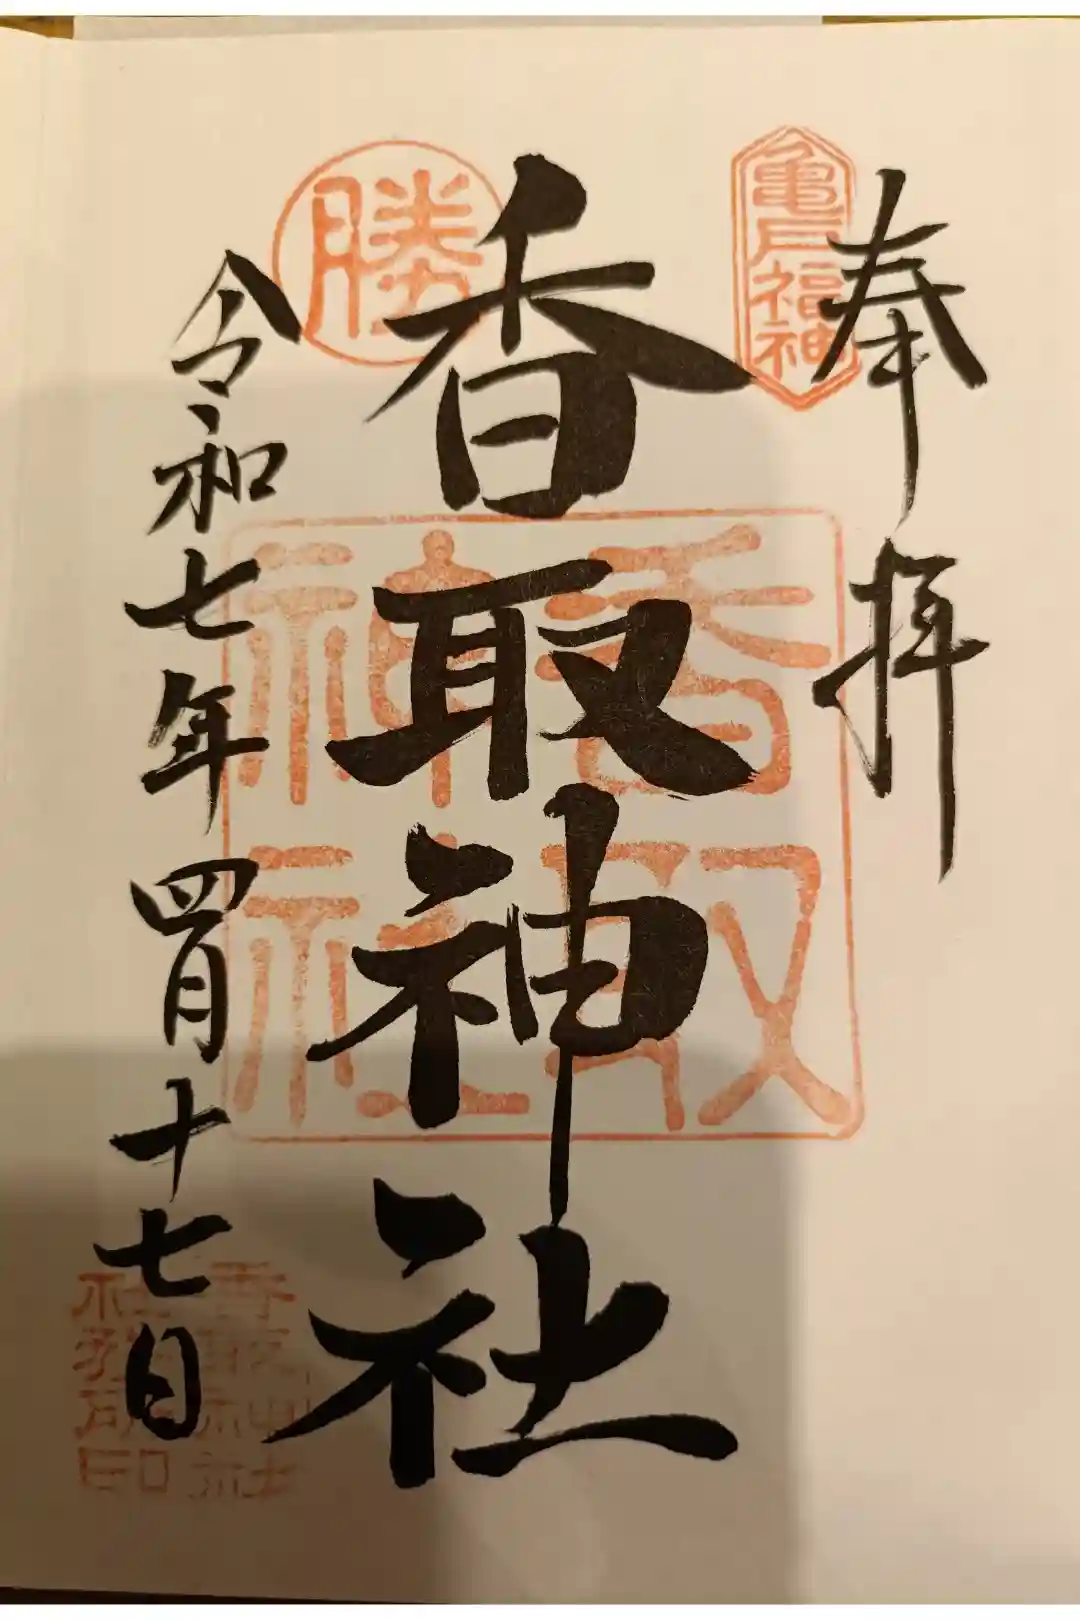 奉拝
亀戸福神
香取神社
勝
香取神社
令和七年四月十七日
香取神社
社務所印